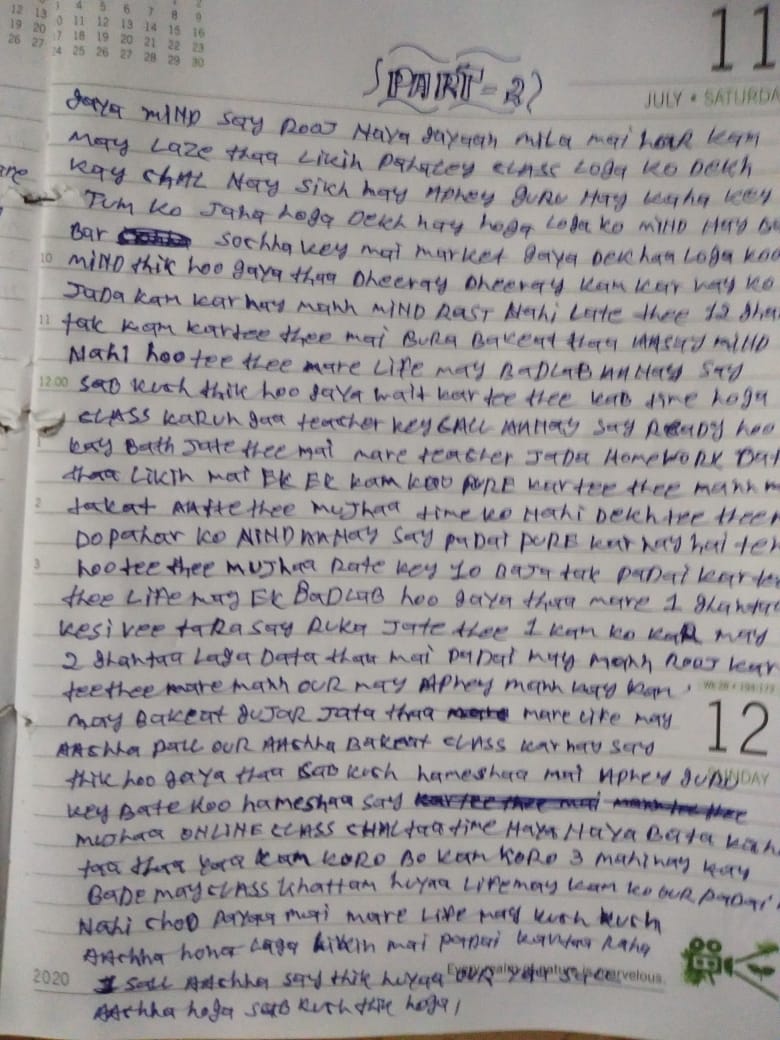 12 13 4 5 6 7 8 9
19 20 11 12 13 14 15 16
26 27 18 19 20 21 22 23
24 25 26 27 28 29 30
11
JULY • SATURDA
(PART-2)
gaya MIND say ROOJ Naya gayaan mila mai har kam
may Laze thaa Likin Pahaley CLASS Loga ko Dekh
kay CHAL Nay sikh nay Aphey guru Nay kaha key
Tum ko Jana hoga Dekh nay hoga Loga ko MIND Nay
Bar sochha key mai market gaya Dekhaa Loga koo
10 MIND thik hoo gaya thaa Dheeray Dheeray kam kar nay ko
Jada kam kar nay mann MIND RAST Nahi Late thee 12 gha
11 tak kam kartee thee mai Bura Bakeat thaa Aasay MIND
Nahi hoo tee thee mare Life may BADLAB AANAY say
12.00 sab kuch thik hoo gaya wait kar tee thee kab time hoga
CLASS KARUN gaa teacher key CALL AANAY say READY hoo
1 kay Bath Jate thee mai mare teacher Jada HOMEWORK
thaa Likin mai EK EK kam koo PURE kar tee thee mann
2 takat AAtte thee mujhaa time ko Nahi Dekh tee thee
Dopahar ko NIND AANAY say padai pure kar nay hai
3 hoo tee thee Mujhaa Rate key 10 Baja tak padai kar
thee Life may EK BADLAB hoo gaya thaa mare 1 ghantaa
kesi vee tarasay Ruka Jate thee 1 kam ko kar may
2 ghantaa Laga Data thaa mai padai may mann Rooj kar
tee thee mare mann our may Aphey mann kay kam
may Bakeat gujar Jata thaa mare Life may
12
SUNDAY
AAchha pall our AAchha Bakeat CLASS kar nay say
thik hoo gaya thaa sab kuch hameshaa mai Aphey guru
key Bate koo hameshaa say kar tee thee mai mann tee thee
mujhaa ONLINE CLASS CHALtaa time Naya Naya Bata kah
taa thaa yaa kam koro Bo kam koro 3 mahinay kay
BADE may CLASS khattam huyaa Life may kam ko our padai
Nahi chod payaa mai mare Life may kuch kuch
AAchha hona Laga Likin mai padai kartaa Raha
2020 I sall AAchha say thik huyaa our
AAchha hoga sab kuch thik hoga,